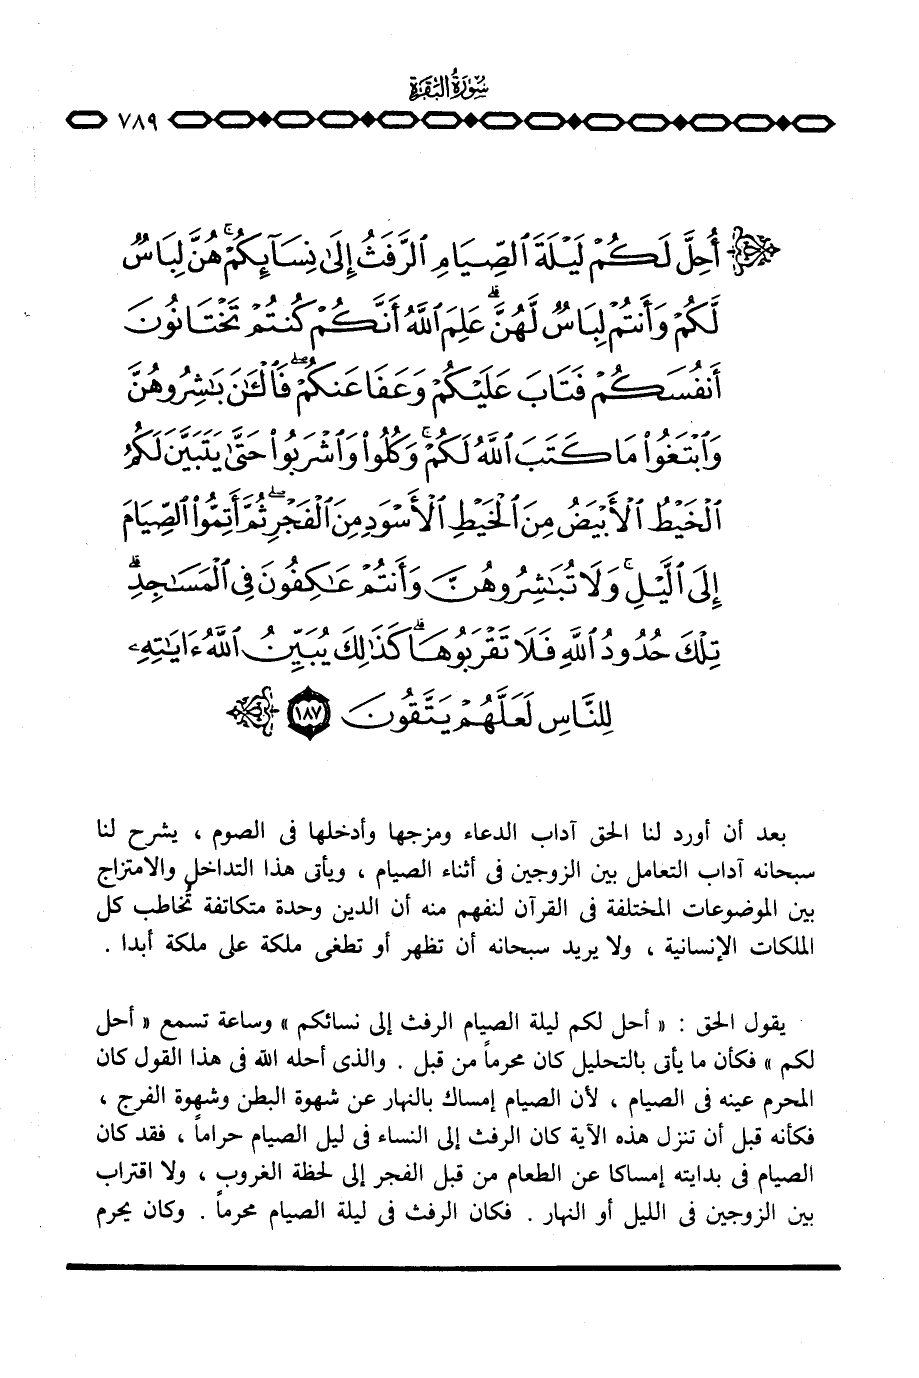 سُورَةُ البَقَرَةِ
٧٨٩
أُحِلَّ لَكُمْ لَيْلَةَ ٱلصِّيَامِ ٱلرَّفَثُ إِلَىٰ نِسَآئِكُمْ ۚ هُنَّ لِبَاسٌ
لَّكُمْ وَأَنتُمْ لِبَاسٌ لَّهُنَّ ۗ عَلِمَ ٱللَّهُ أَنَّكُمْ كُنتُمْ تَخْتَانُونَ
أَنفُسَكُمْ فَتَابَ عَلَيْكُمْ وَعَفَا عَنكُمْ ۖ فَٱلْـَٰٔنَ بَـٰشِرُوهُنَّ
وَٱبْتَغُوا۟ مَا كَتَبَ ٱللَّهُ لَكُمْ ۚ وَكُلُوا۟ وَٱشْرَبُوا۟ حَتَّىٰ يَتَبَيَّنَ لَكُمُ
ٱلْخَيْطُ ٱلْأَبْيَضُ مِنَ ٱلْخَيْطِ ٱلْأَسْوَدِ مِنَ ٱلْفَجْرِ ۖ ثُمَّ أَتِمُّوا۟ ٱلصِّيَامَ
إِلَى ٱلَّيْلِ ۚ وَلَا تُبَـٰشِرُوهُنَّ وَأَنتُمْ عَـٰكِفُونَ فِى ٱلْمَسَـٰجِدِ ۗ
تِلْكَ حُدُودُ ٱللَّهِ فَلَا تَقْرَبُوهَا ۗ كَذَٰلِكَ يُبَيِّنُ ٱللَّهُ ءَايَـٰتِهِۦ
لِلنَّاسِ لَعَلَّهُمْ يَتَّقُونَ ١٨٧
بعد أن أورد لنا الحق آداب الدعاء ومزجها وأدخلها فى الصوم ، يشرح لنا
سبحانه آداب التعامل بين الزوجين فى أثناء الصيام ، ويأتى هذا التداخل والامتزاج
بين الموضوعات المختلفة فى القرآن لنفهم منه أن الدين وحدة متكاتفة تُخاطب كل
الملكات الإنسانية ، ولا يريد سبحانه أن تظهر أو تطغى ملكة على ملكة أبدا .
يقول الحق : « أحل لكم ليلة الصيام الرفث إلى نسائكم » وساعة تسمع « أحل
لكم » فكأن ما يأتى بالتحليل كان محرماً من قبل . والذى أحله الله فى هذا القول كان
المحرم عينه فى الصيام ، لأن الصيام إمساك بالنهار عن شهوة البطن وشهوة الفرج ،
فكأنه قبل أن تنزل هذه الآية كان الرفث إلى النساء فى ليل الصيام حراماً ، فقد كان
الصيام فى بدايته إمساكا عن الطعام من قبل الفجر إلى لحظة الغروب ، ولا اقتراب
بين الزوجين فى الليل أو النهار . فكان الرفث فى ليلة الصيام محرماً . وكان يحرم